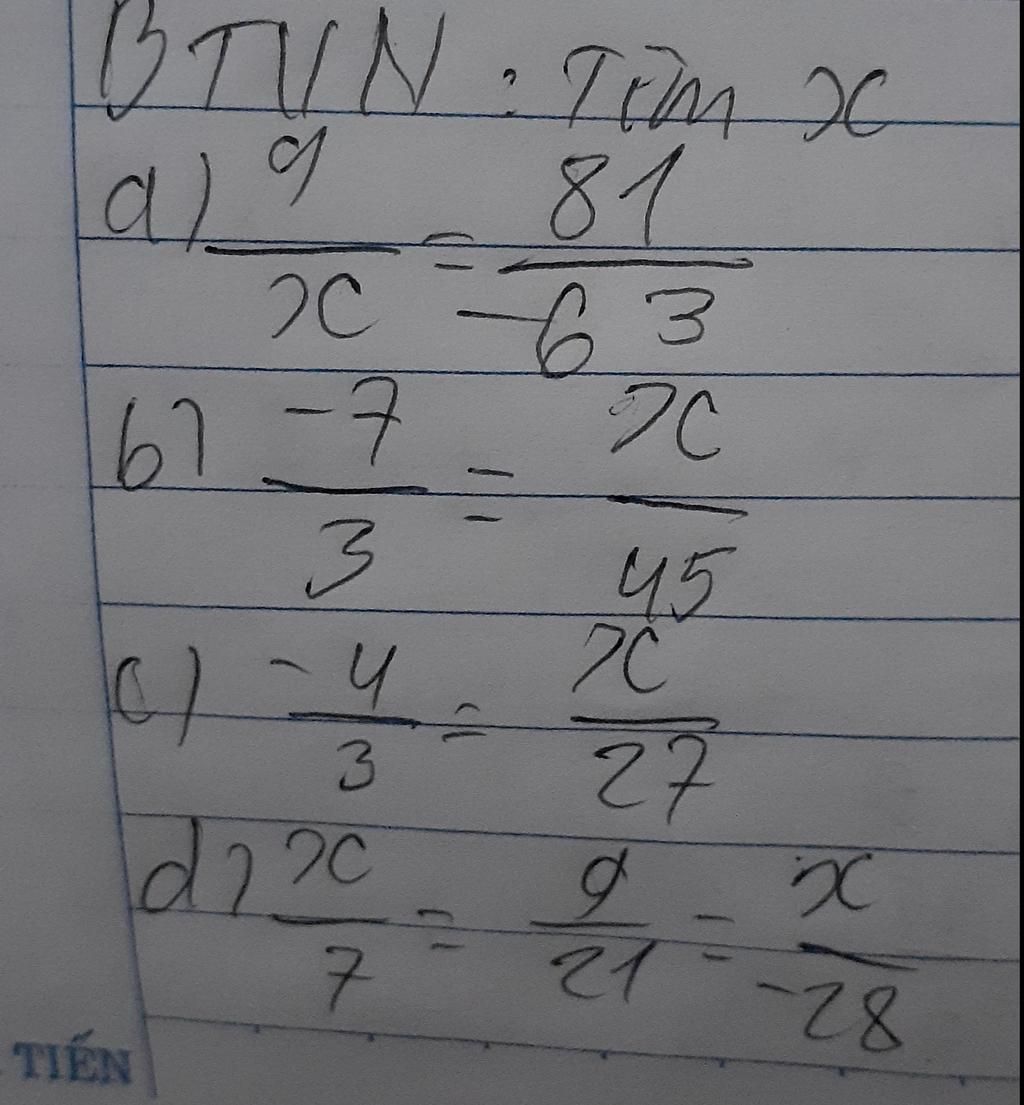 BTVN: Tìm x
a) 9/x = 81/-63
b) -7/3 = x/45
c) -4/3 = x/27
d) x/7 = 9/21 = x/-28
TIẾN